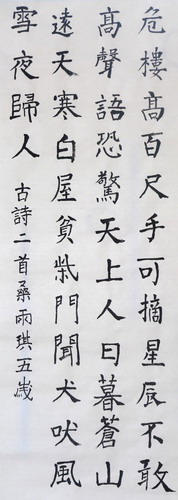 危樓高百尺手可摘星辰不敢
高聲語恐驚天上人日暮蒼山
遠天寒白屋貧柴門聞犬吠風
雪夜歸人
古詩二首桑雨琪五歲